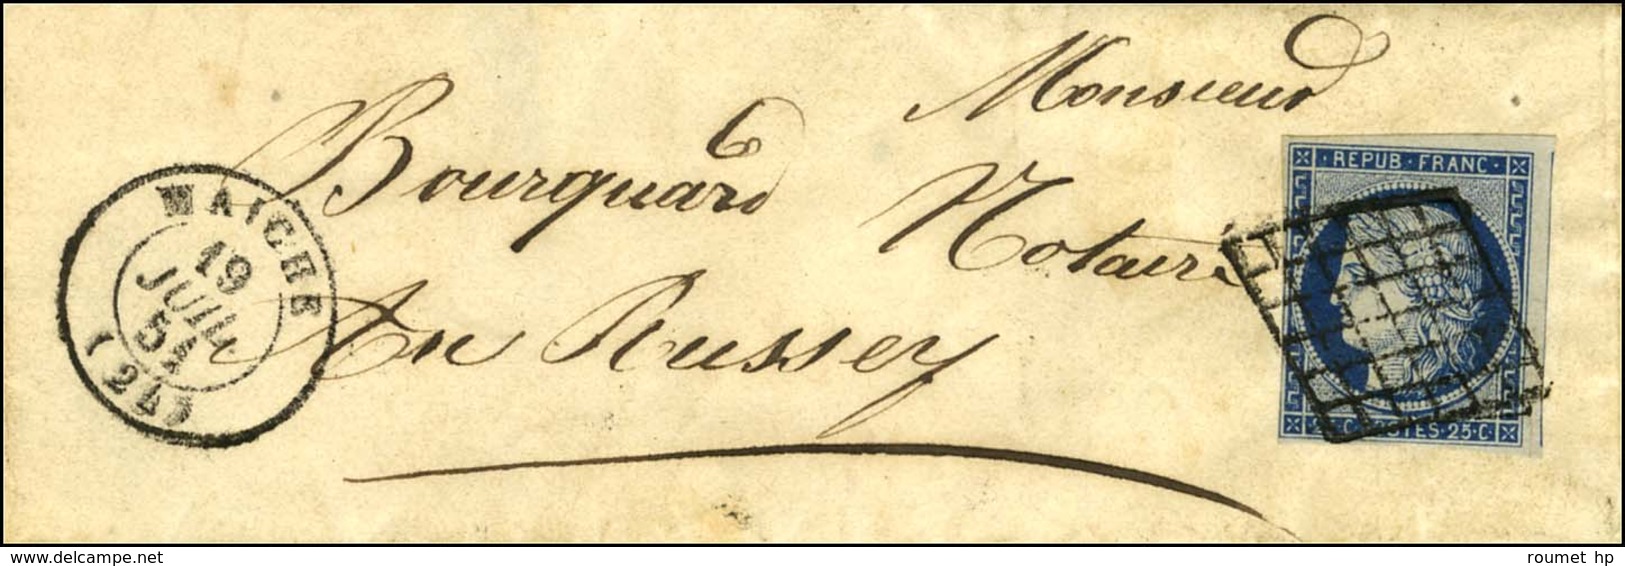 Monsieur
Bourquard Notaire
Au Russey
MAICHE
19
JUIL.
51
(24)
REPUB·FRANC
POSTES·25·C
www.delcampe.net
roumet hp